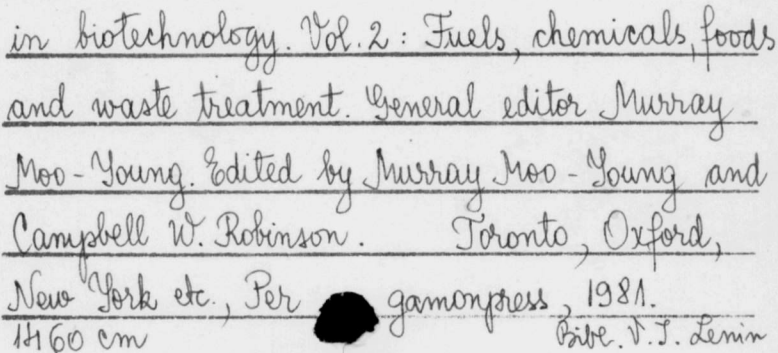 in biotechnology. Vol. 2 : Fuels, chemicals, foods
and waste treatment. General editor Murray
Moo - Young. Edited by Murray Moo - Young and
Campbell W. Robinson. Toronto, Oxford,
New York etc., Per gamonpress, 1981.
cm Bibl. V. I. Lenin